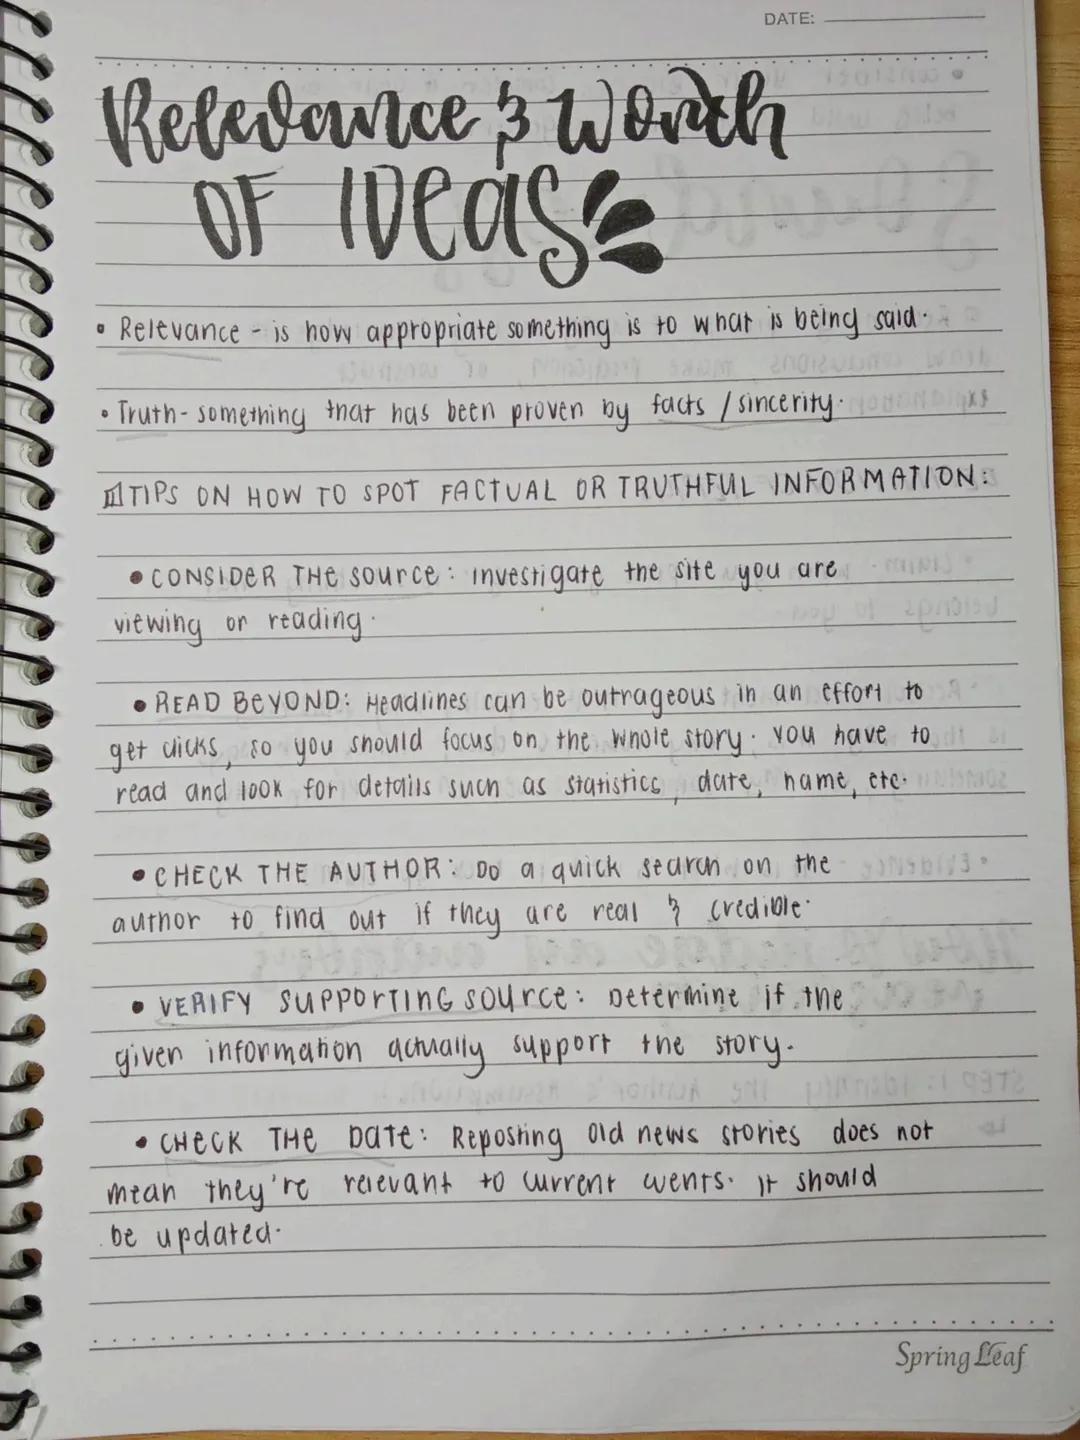 DATE:
Relevance & Worth
OF IDeas
• Relevance - is how appropriate something is to what is being said.
• Truth - something that has been proven by facts / sincerity.
TIPS ON HOW TO SPOT FACTUAL OR TRUTHFUL INFORMATION:
• CONSIDER THE SOURCE: investigate the site you are
viewing or reading.
• READ BEYOND: Headlines can be outrageous in an effort to
get clicks, so you should focus on the whole story. You have to
read and look for details such as statistics, date, name, etc.
• CHECK THE AUTHOR: Do a quick search on the
author to find out if they are real & credible.
• VERIFY SUPPORTING SOURCE: Determine if the
given information actually support the story.
• CHECK THE DATE: Reposting old news stories does not
mean they're relevant to current events. It should
be updated.
Spring Leaf